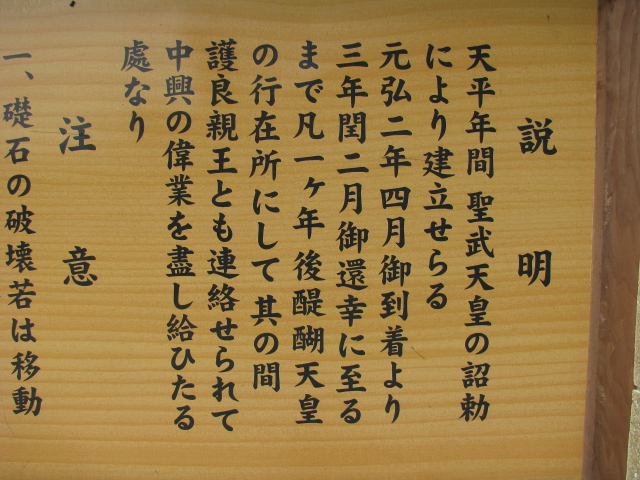 説明
天平年間聖武天皇の詔勅
により建立せらる
元弘二年四月御到着より
三年閏二月御還幸に至る
まで凡一ヶ年後醍醐天皇
の行在所にして其の間
護良親王とも連絡せられて
中興の偉業を盡し給ひたる
處なり
注意
一、礎石の破壊若は移動